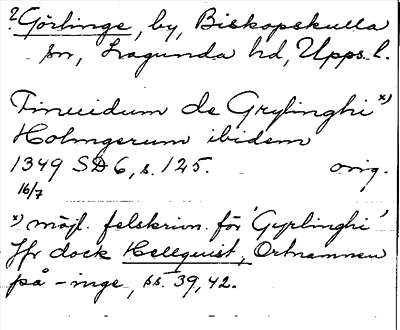 ? Görlinge, by, Biskopskulla
sn, Lagunda hd, Upps. l.
Tinuidum de Grylinghi x)
Holmgerum ibidem
1349 SD 6, s. 125. orig.
16/7
x) möjl. felskrivn. för 'Gyrlinghi'
Jfr dock Hellquist, Ortnamnen
på -inge, ss. 39, 42.